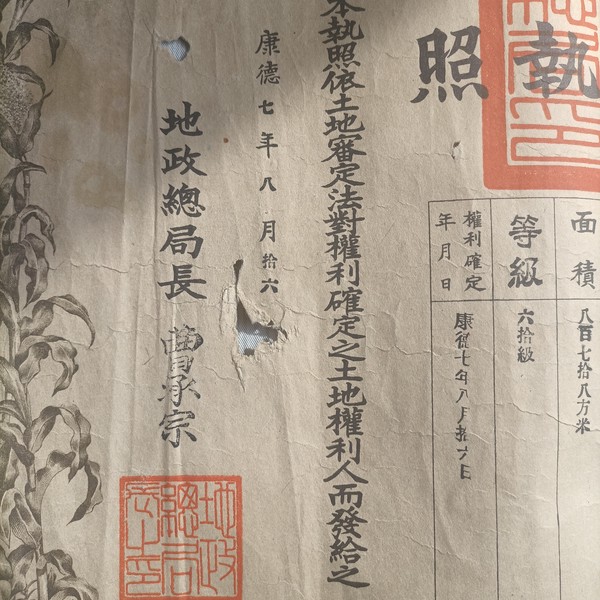 執照
面積
八百七拾八方米
等級
六拾級
權利確定
年月日
康德七年八月拾六日
本執照依土地審定法對權利確定之土地權利人而發給之
康德七年八月拾六
地政總局長 曹承宗
地政
總局
長之印